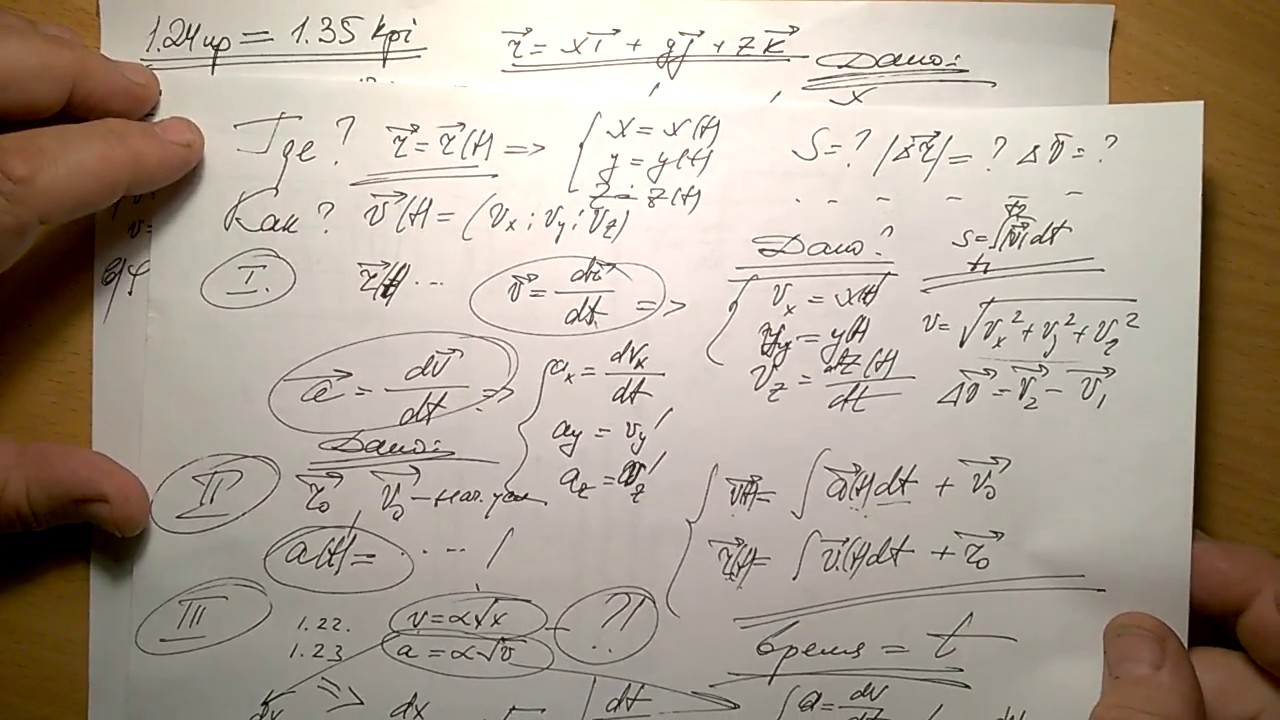 1.24 ир = 1.35 kpi
r⃗ = xi⃗ + yj⃗ + zk⃗
Дано:
x
Где? r⃗ = r⃗(t) => { x = x(t)
y = y(t)
z = z(t)
S = ? |Δr⃗| = ? Δv⃗ = ?
Как? v⃗(t) = (vₓ; v_y; v_z)
Дано?
S = ∫|v⃗|dt
t₂
t₁
I. r⃗(t) ... v⃗ = dr⃗/dt =>
{ vₓ = x(t)
v_y = y(t)
v_z = dz(t)/dt
v = √(vₓ² + v_y² + v_z²)
Δv⃗ = v⃗₂ − v⃗₁
a⃗ = dv⃗/dt => { aₓ = dvₓ/dt
a_y = v_y′
a_z = v_z′
II Дано:
r⃗₀ v⃗₀ – нач. усл.
a(t) = ....
{ v⃗(t) = ∫a⃗(t)dt + v⃗₀
r⃗(t) = ∫v⃗(t)dt + r⃗₀
III 1.22. v = α√x
1.23 a = α√v
?!
время = t
=> dx
dt
a = dv